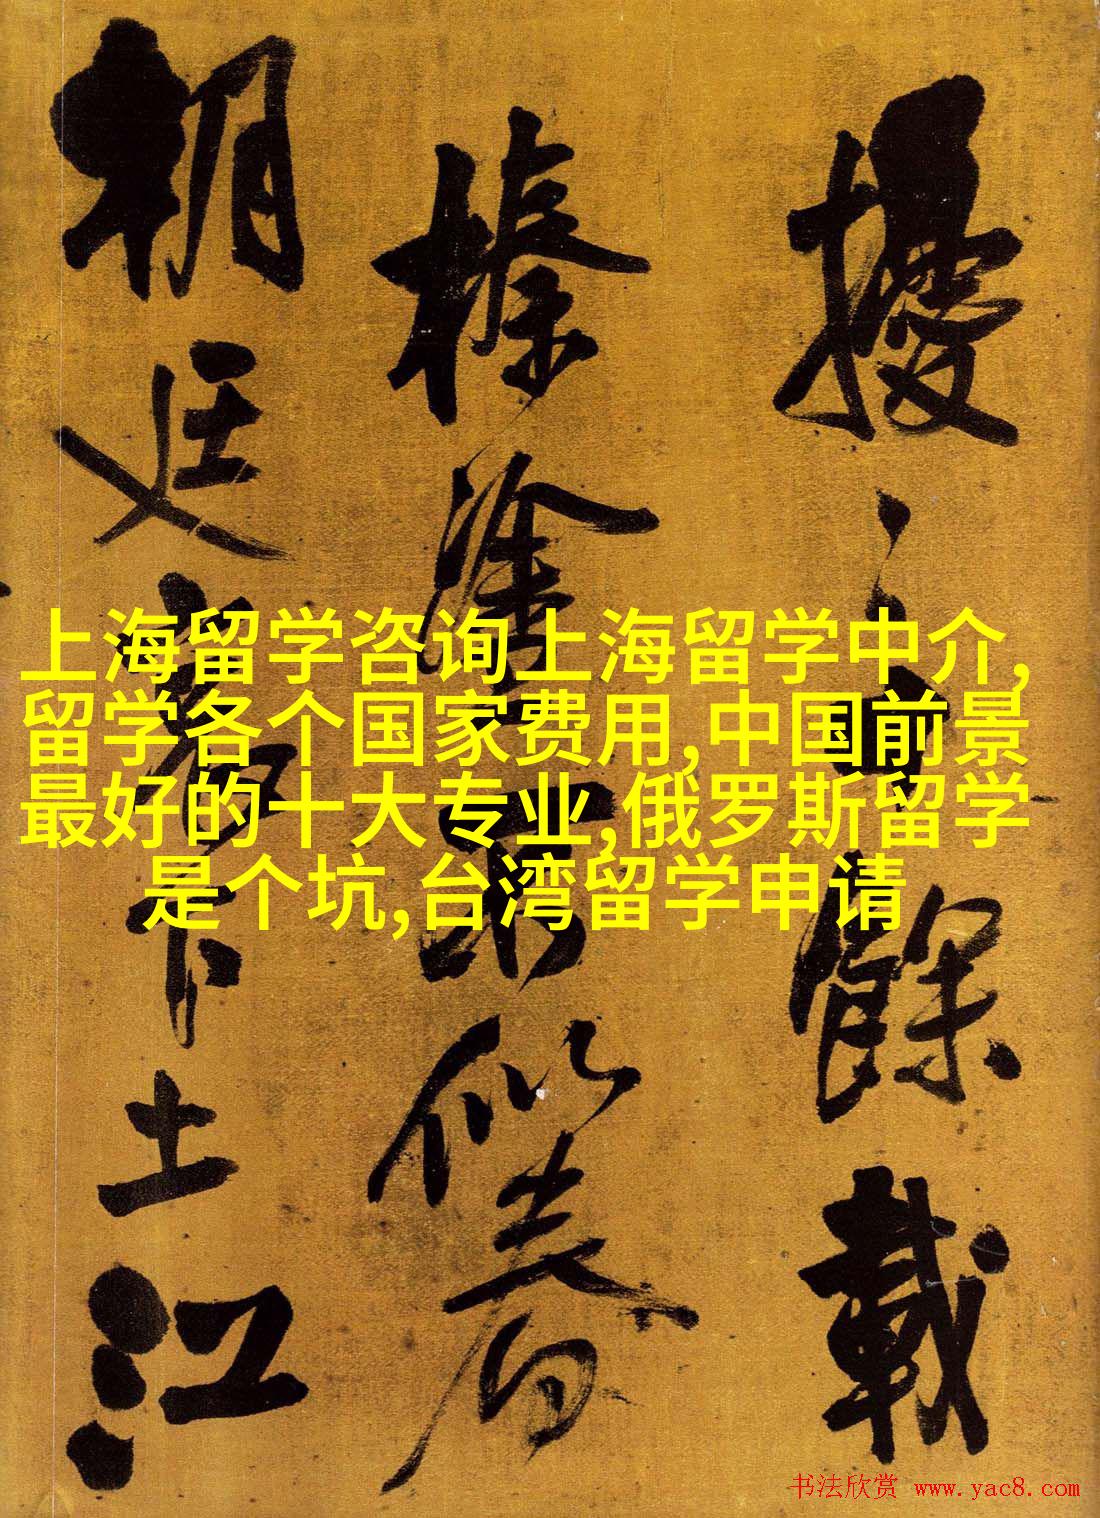 擾之十餘載
榛塗
朝廷下土江
上海留学咨询上海留学中介,
留学各个国家费用,中国前景
最好的十大专业,俄罗斯留学
是个坑,台湾留学申请
书法欣赏 www.yac8.com